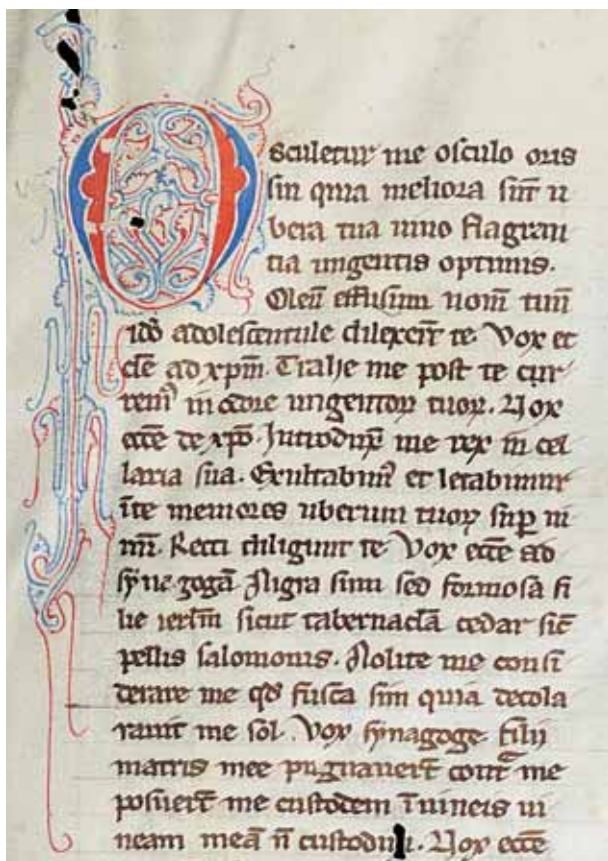 Osculetur me osculo oris
sui quia meliora sūt u
bera tua uino flagran
tia ungentis optimis.
Oleū effusum nom̄ tuū
ido adolescentule dilexer̄t te. Vox ec
cl̄e ad xp̄m. Trahe me post te cur
remꝰ in odore ungentoꝝ tuoꝝ. Vox
ecc̄e de xp̄o. Introdux̄ me rex in cel
laria sua. Exultabimꝰ et letabimur
ī te memores uberum tuoꝝ suꝑ ui
nū. Recti diligunt te. Vox ecc̄e ad
synagogā. Nigra sum sed formosa fi
lie ierl̄m sicut tabernacl̄a cedar sic̄
pellis salomonis. Nolite me consi
derare me qd̄ fusca sim quia decola
rauit me sol. Vox synagoge. Filij
matris mee pugnauer̄t cont̄ me
posuer̄t me custodem ī uineis ui
neam meā n̄ custodiui. Vox ecc̄e